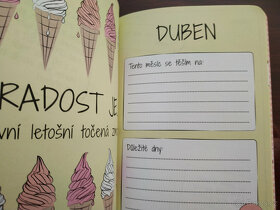 RADOST JE
vní letošní točená zm
DUBEN
Tento měsíc se těším na:
Důležité dny: